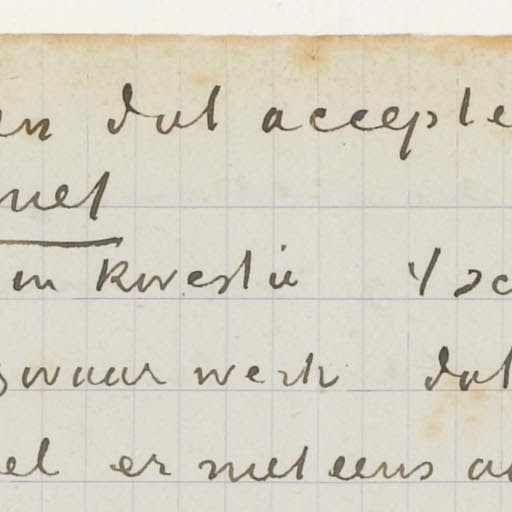 en dat accepte
niet
in kwestie 't
zwaar werk dat
el er niet eens